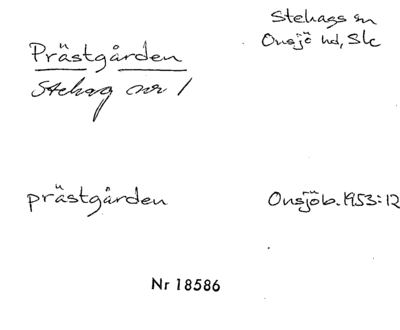 Stehags sn
Onsjö hd, Slc
Prästgården
Stehag nr 1
prästgården
Onsjöb. 1953:12
Nr 18586